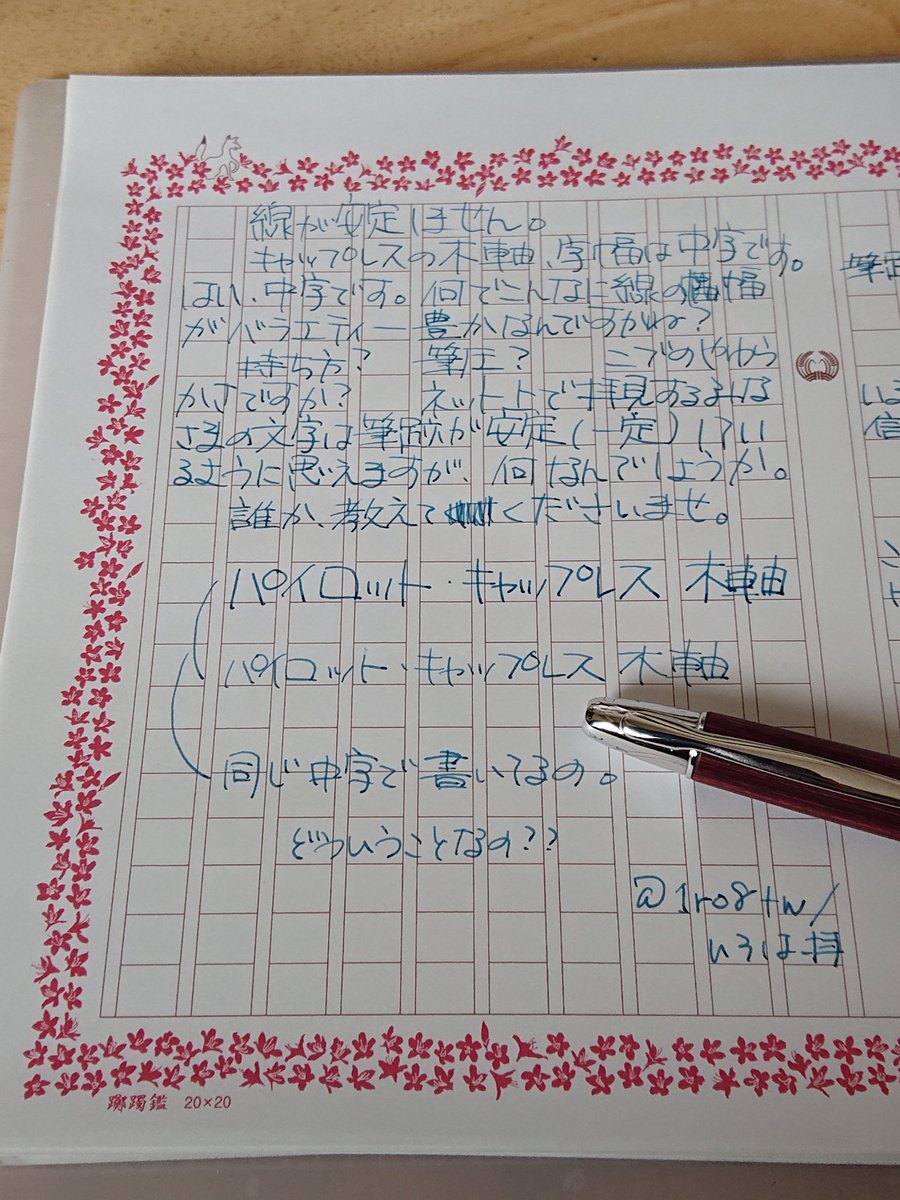 線が安定しません。
キャップレスの木軸、字幅は中字です。
はい、中字です。何でこんなに線の幅
がバラエティー豊かなんですかね?
持ち方? 筆圧? ニブのやわら
かさですか? ネットで拝見するみなな
さまの文字は筆跡が安定(一定)してい
るように思えますが、何なんでしょうか。
誰か、教えてくださいませ。
パイロット・キャップレス 木軸
パイロット・キャップレス 木軸
同じ中字で書いてるの。
どういうことなの??
@1ro8tw/
いろは拝
躑躅鑑 20×20